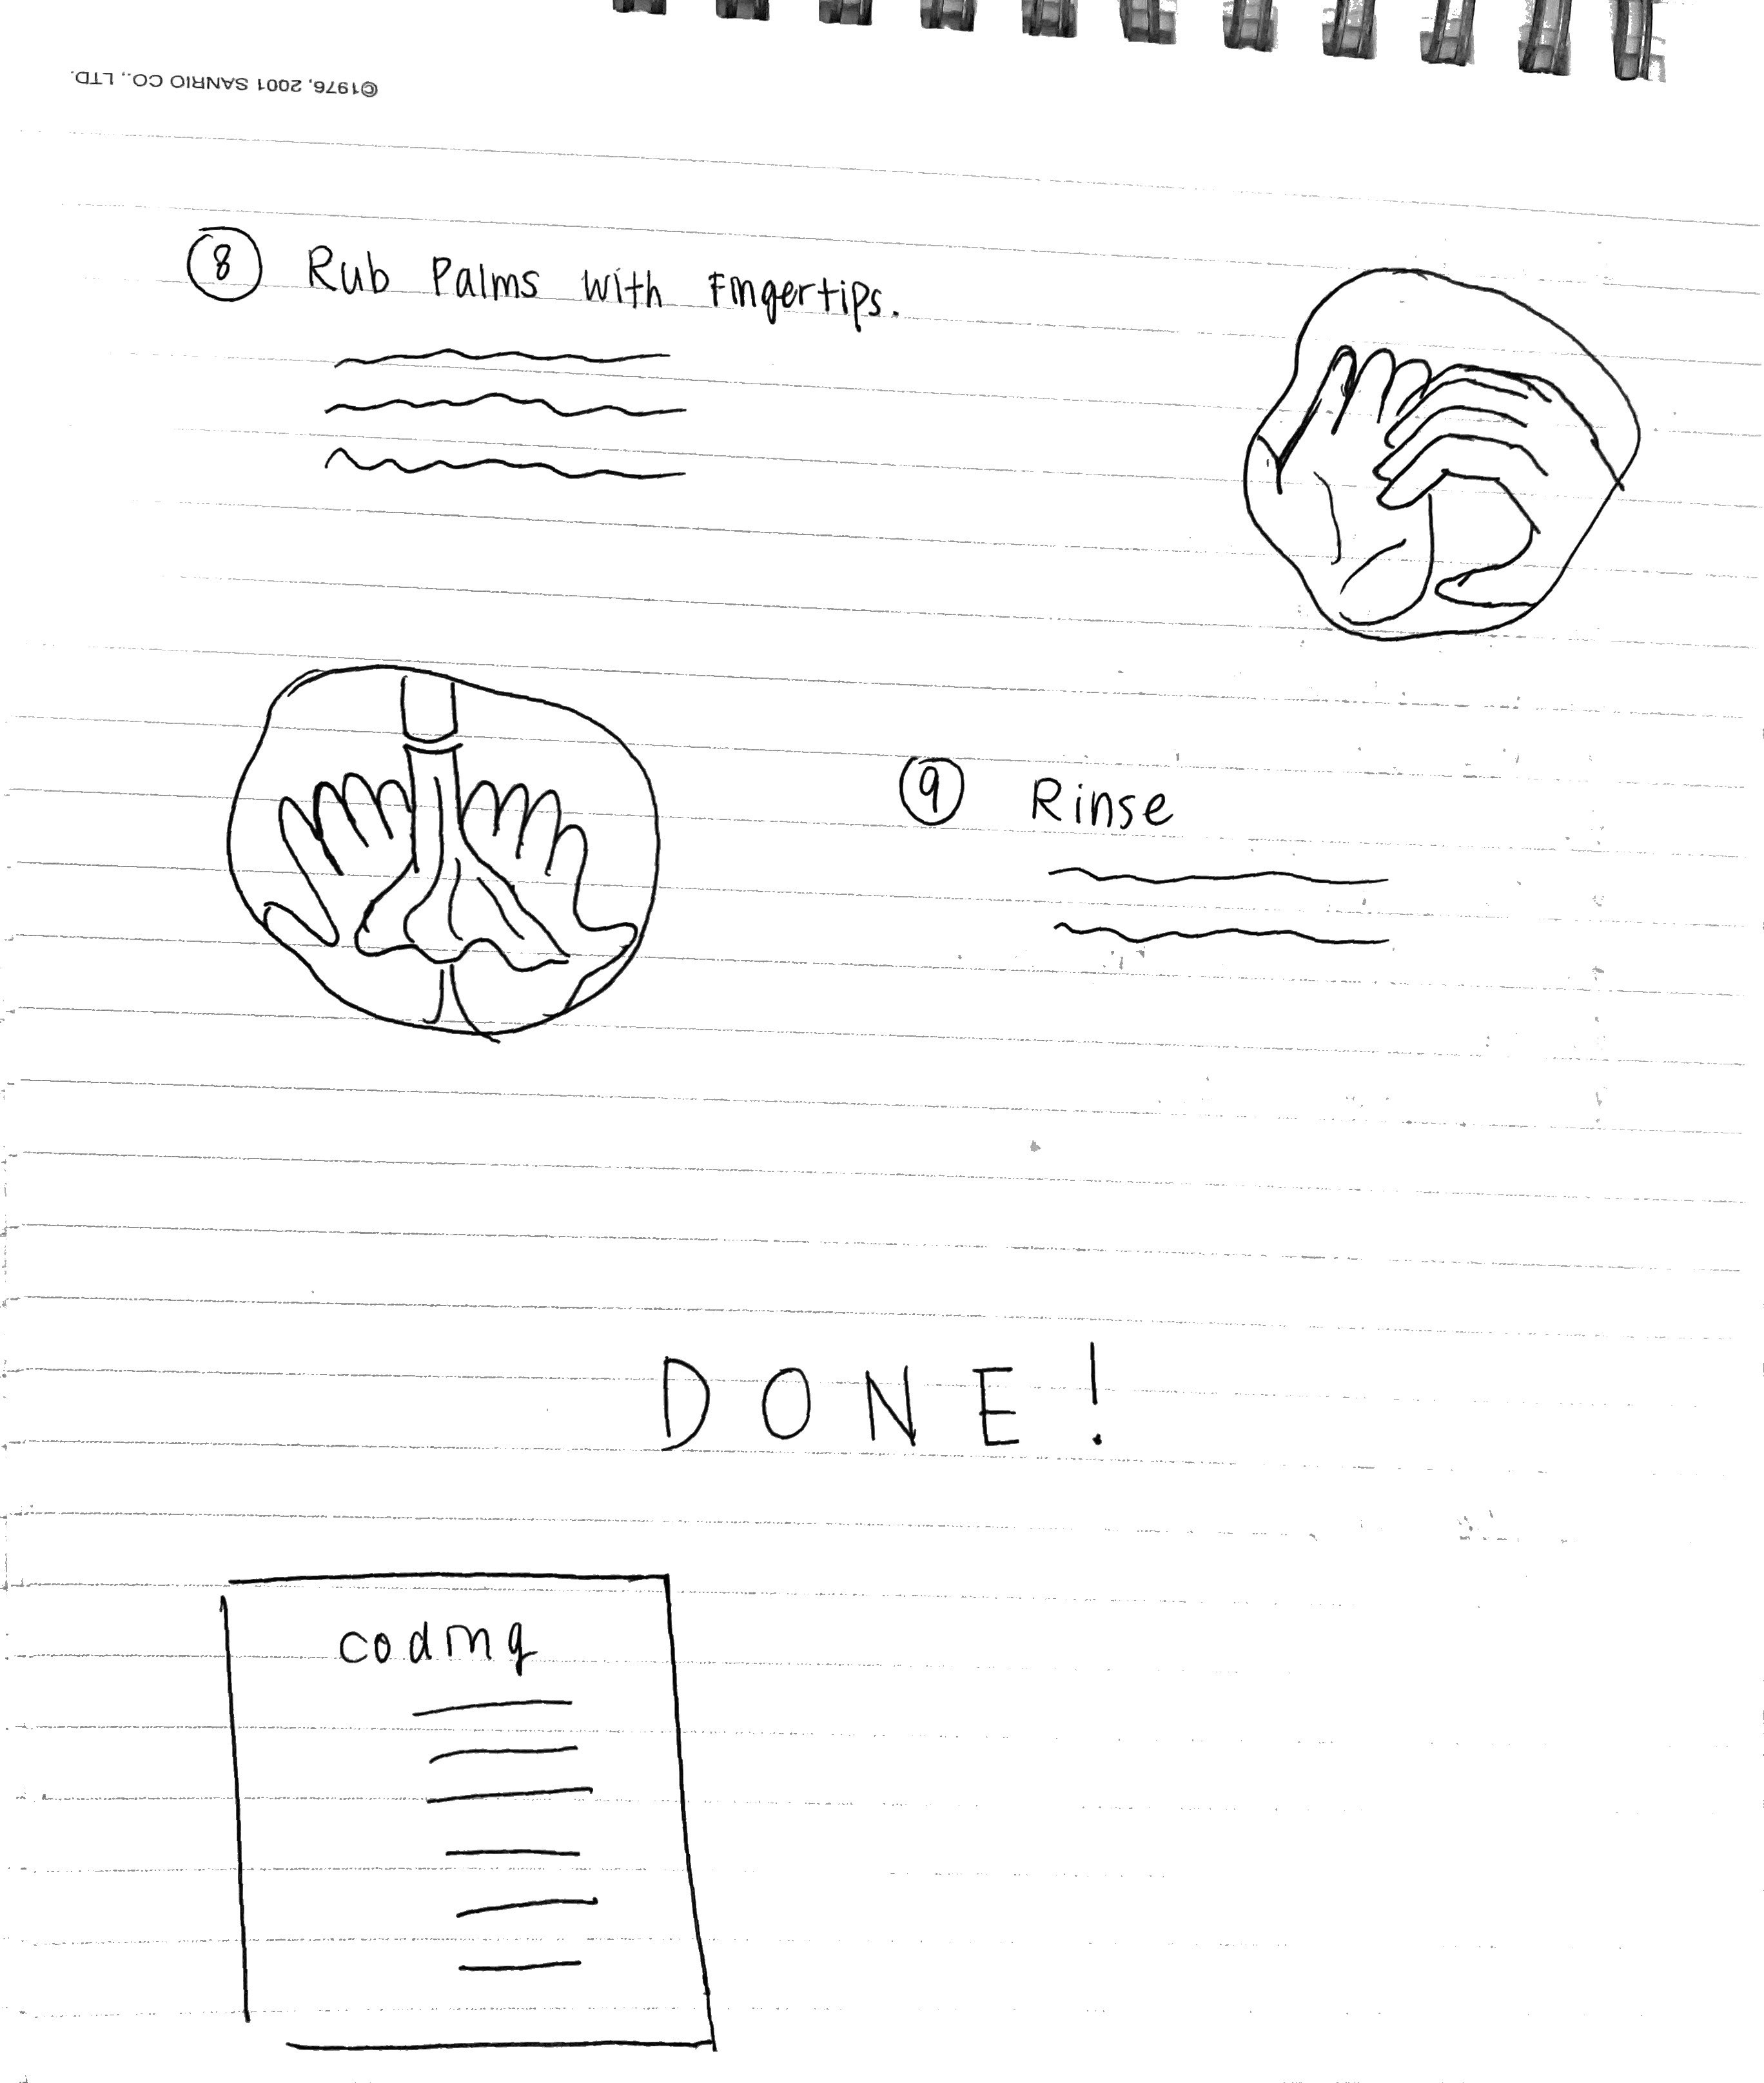 ©1976, 2001 SANRIO CO., LTD.
⑧ Rub Palms with Fingertips.
⑨ Rinse
DONE!
coding